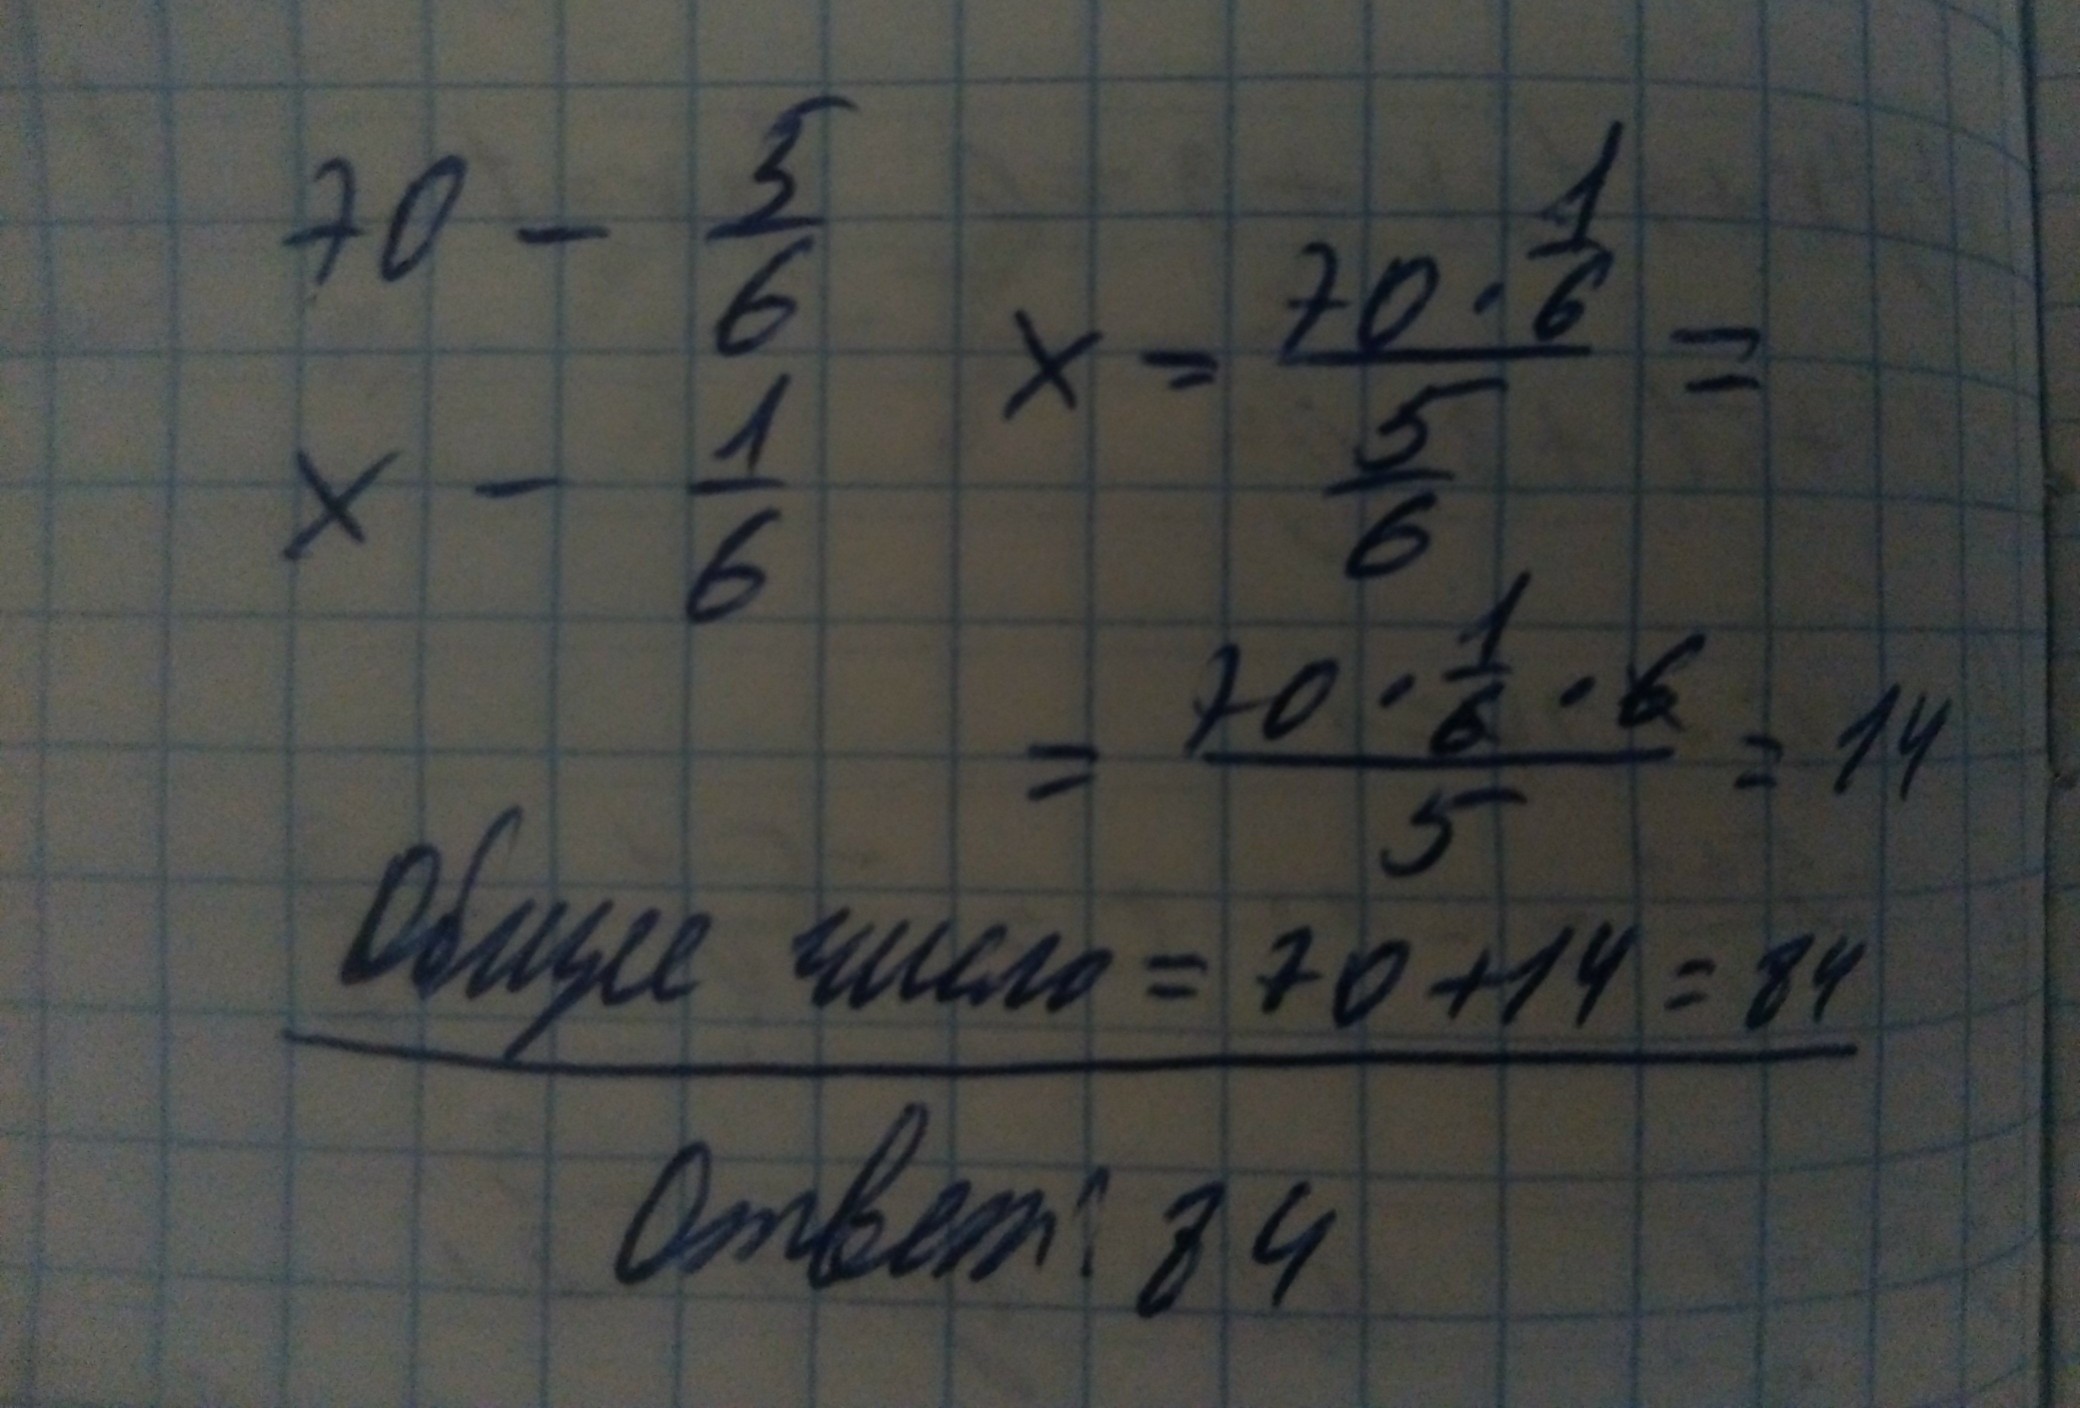 70 - 5/6
x - 1/6
x = (70 · 1/6) / (5/6) =
= (70 · 1/6 · 6) / 5 = 14
Общее число = 70 + 14 = 84
Ответ: 84